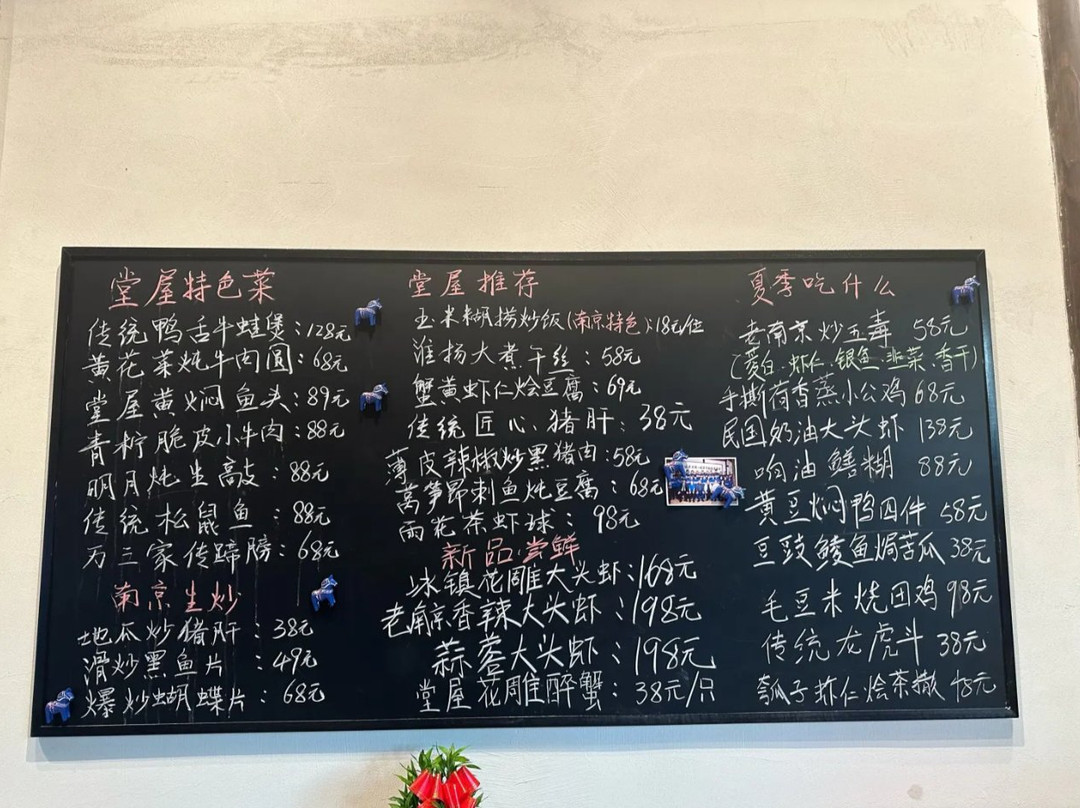 堂屋特色菜
传统鸭舌牛蛙煲:128元
黄花菜炖牛肉圆:68元
堂屋黄焖鱼头:89元
青柠脆皮小牛肉:88元
明月炖生敲:88元
传统松鼠鱼:88元
万三家传蹄膀:68元
南京生炒
地瓜炒猪肝:38元
滑炒黑鱼片:49元
爆炒蝴蝶片:68元
堂屋推荐
玉米糊捞炒饭(南京特色):18元/位
淮扬大煮干丝:58元
蟹黄虾仁烩豆腐:69元
传统匠心猪肝:38元
薄皮辣椒炒黑猪肉:58元
莴笋昂刺鱼炖豆腐:68元
雨花茶虾球:98元
新品尝鲜
冰镇花雕大头虾:168元
老南京香辣大头虾:198元
蒜蓉大头虾:198元
堂屋花雕醉蟹:38元/只
夏季吃什么
老南京炒五毒 58元
(茭白.虾仁.银鱼.韭菜.香干)
手撕荷香蒸小公鸡 68元
民国奶油大头虾 138元
响油鳝糊 88元
黄豆焖鸭四件 58元
豆豉鲮鱼焗苦瓜 38元
毛豆米烧田鸡 98元
传统龙虎斗 38元
瓠子虾仁烩茶馓 48元